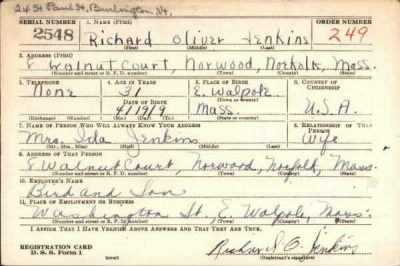 24 St Paul St, Burlington Vt.
SERIAL NUMBER 1. NAME (Print) ORDER NUMBER
2548 Richard Oliver Jenkins 249
(First) (Middle) (Last)
2. ADDRESS (Print)
8 Walnut Court, Norwood, Norfolk, Mass.
(Number and street or R. F. D. number) (Town) (County) (State)
3. TELEPHONE 4. AGE IN YEARS 5. PLACE OF BIRTH 6. COUNTRY OF CITIZENSHIP
None 31 E. Walpole U.S.A.
(Town or county)
DATE OF BIRTH
4/19/9 Mass.
(Exchange) (No.) (Mo.) (Day) (Yr.) (State or country)
7. NAME OF PERSON WHO WILL ALWAYS KNOW YOUR ADDRESS 8. RELATIONSHIP OF THAT PERSON
Mrs. Ida Jenkins Wife
(Mr., Mrs., Miss) (First) (Middle) (Last)
9. ADDRESS OF THAT PERSON
8 Walnut Court, Norwood, Norfolk, Mass.
(Number and street or R. F. D. number) (Town) (County) (State)
10. EMPLOYER'S NAME
Bird and Son
11. PLACE OF EMPLOYMENT OR BUSINESS
Washington St., E. Walpole, Mass.
(Number and street or R. F. D. number) (Town) (County) (State)
I AFFIRM THAT I HAVE VERIFIED ABOVE ANSWERS AND THAT THEY ARE TRUE.
REGISTRATION CARD
D. S. S. Form 1
Richard O. Jenkins
(Registrant's signature)